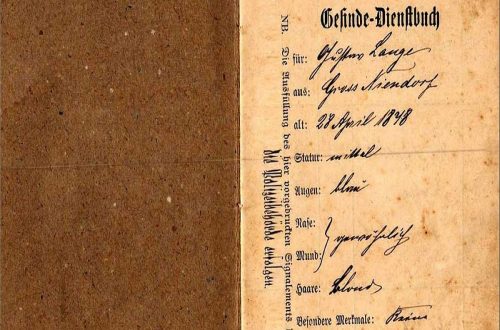 Gesinde-Dienstbuch
für: Gustav Lange
aus: Gross Niendorf
alt: 28 April 1848
Statur: mittel
Augen: blau
Nase:
Mund: gewöhnlich
Haare: blond
Besondere Merkmale: Keine
NB. Die Ausfüllung des hier vorgedruckten Signalements
die Polizeibehörde erfolgen.